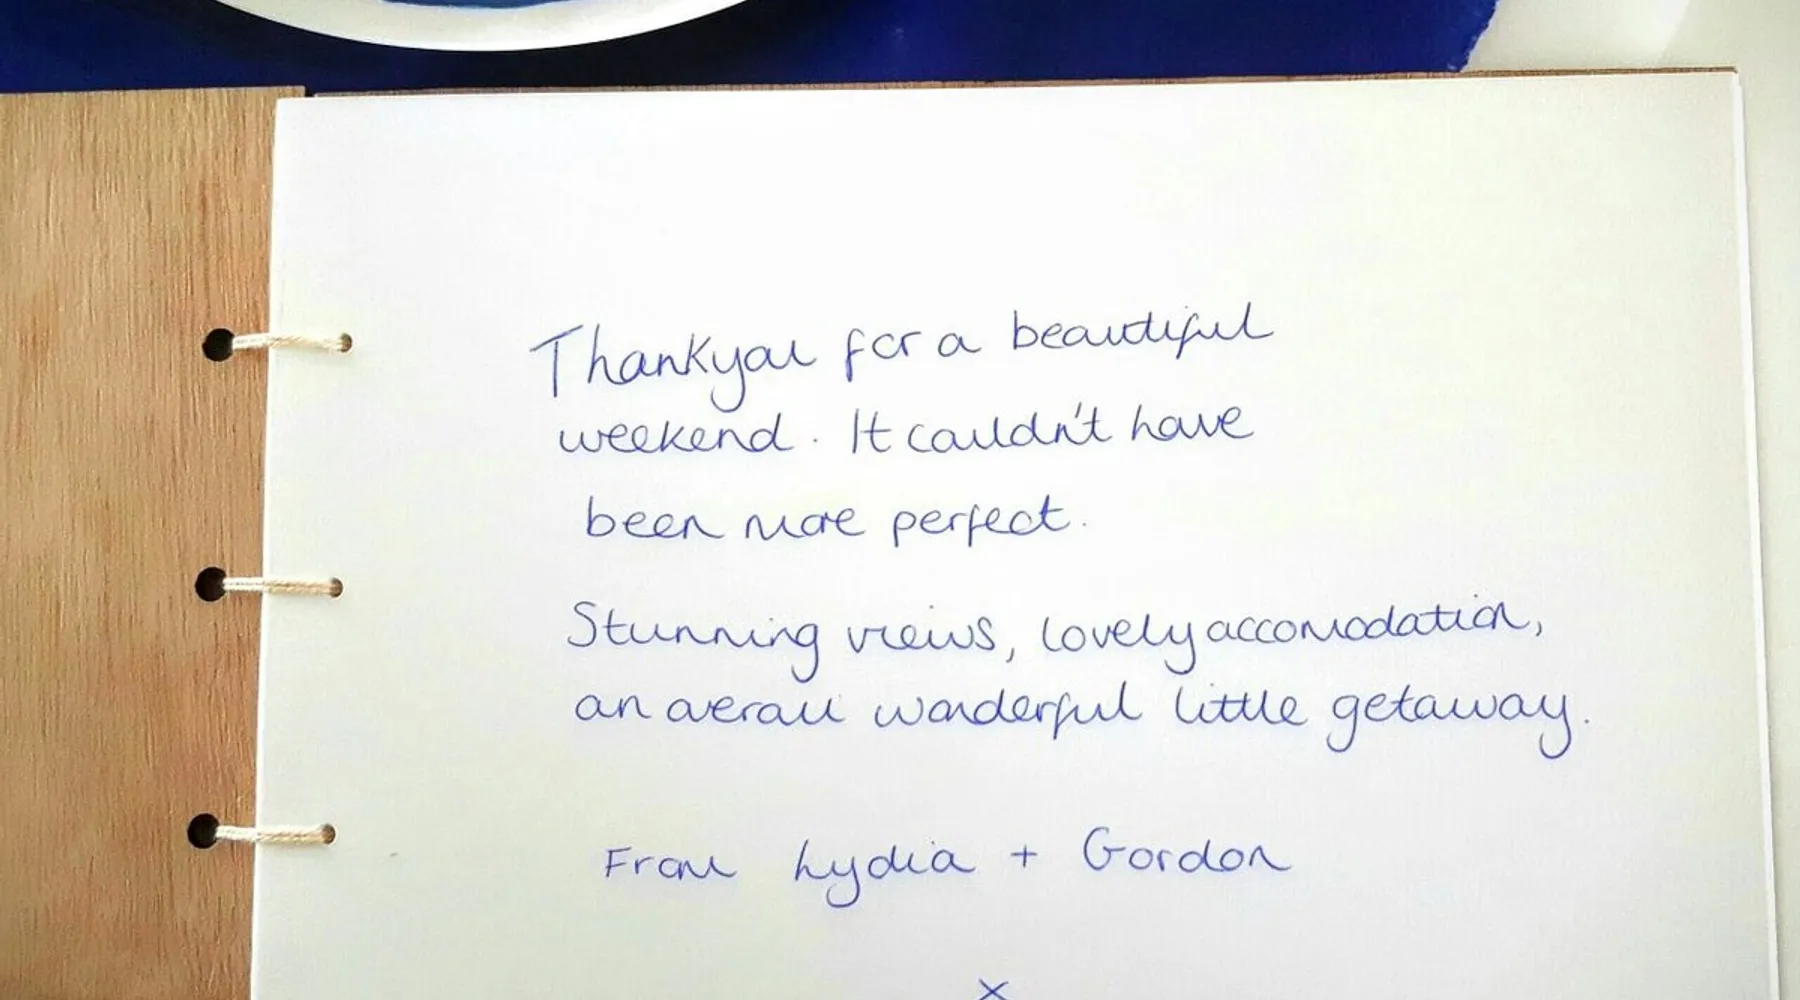 Thankyou for a beautiful
weekend. It couldn't have
been more perfect.
Stunning views, lovely accomodation,
an overall wonderful little getaway.
From Lydia + Gordon
x